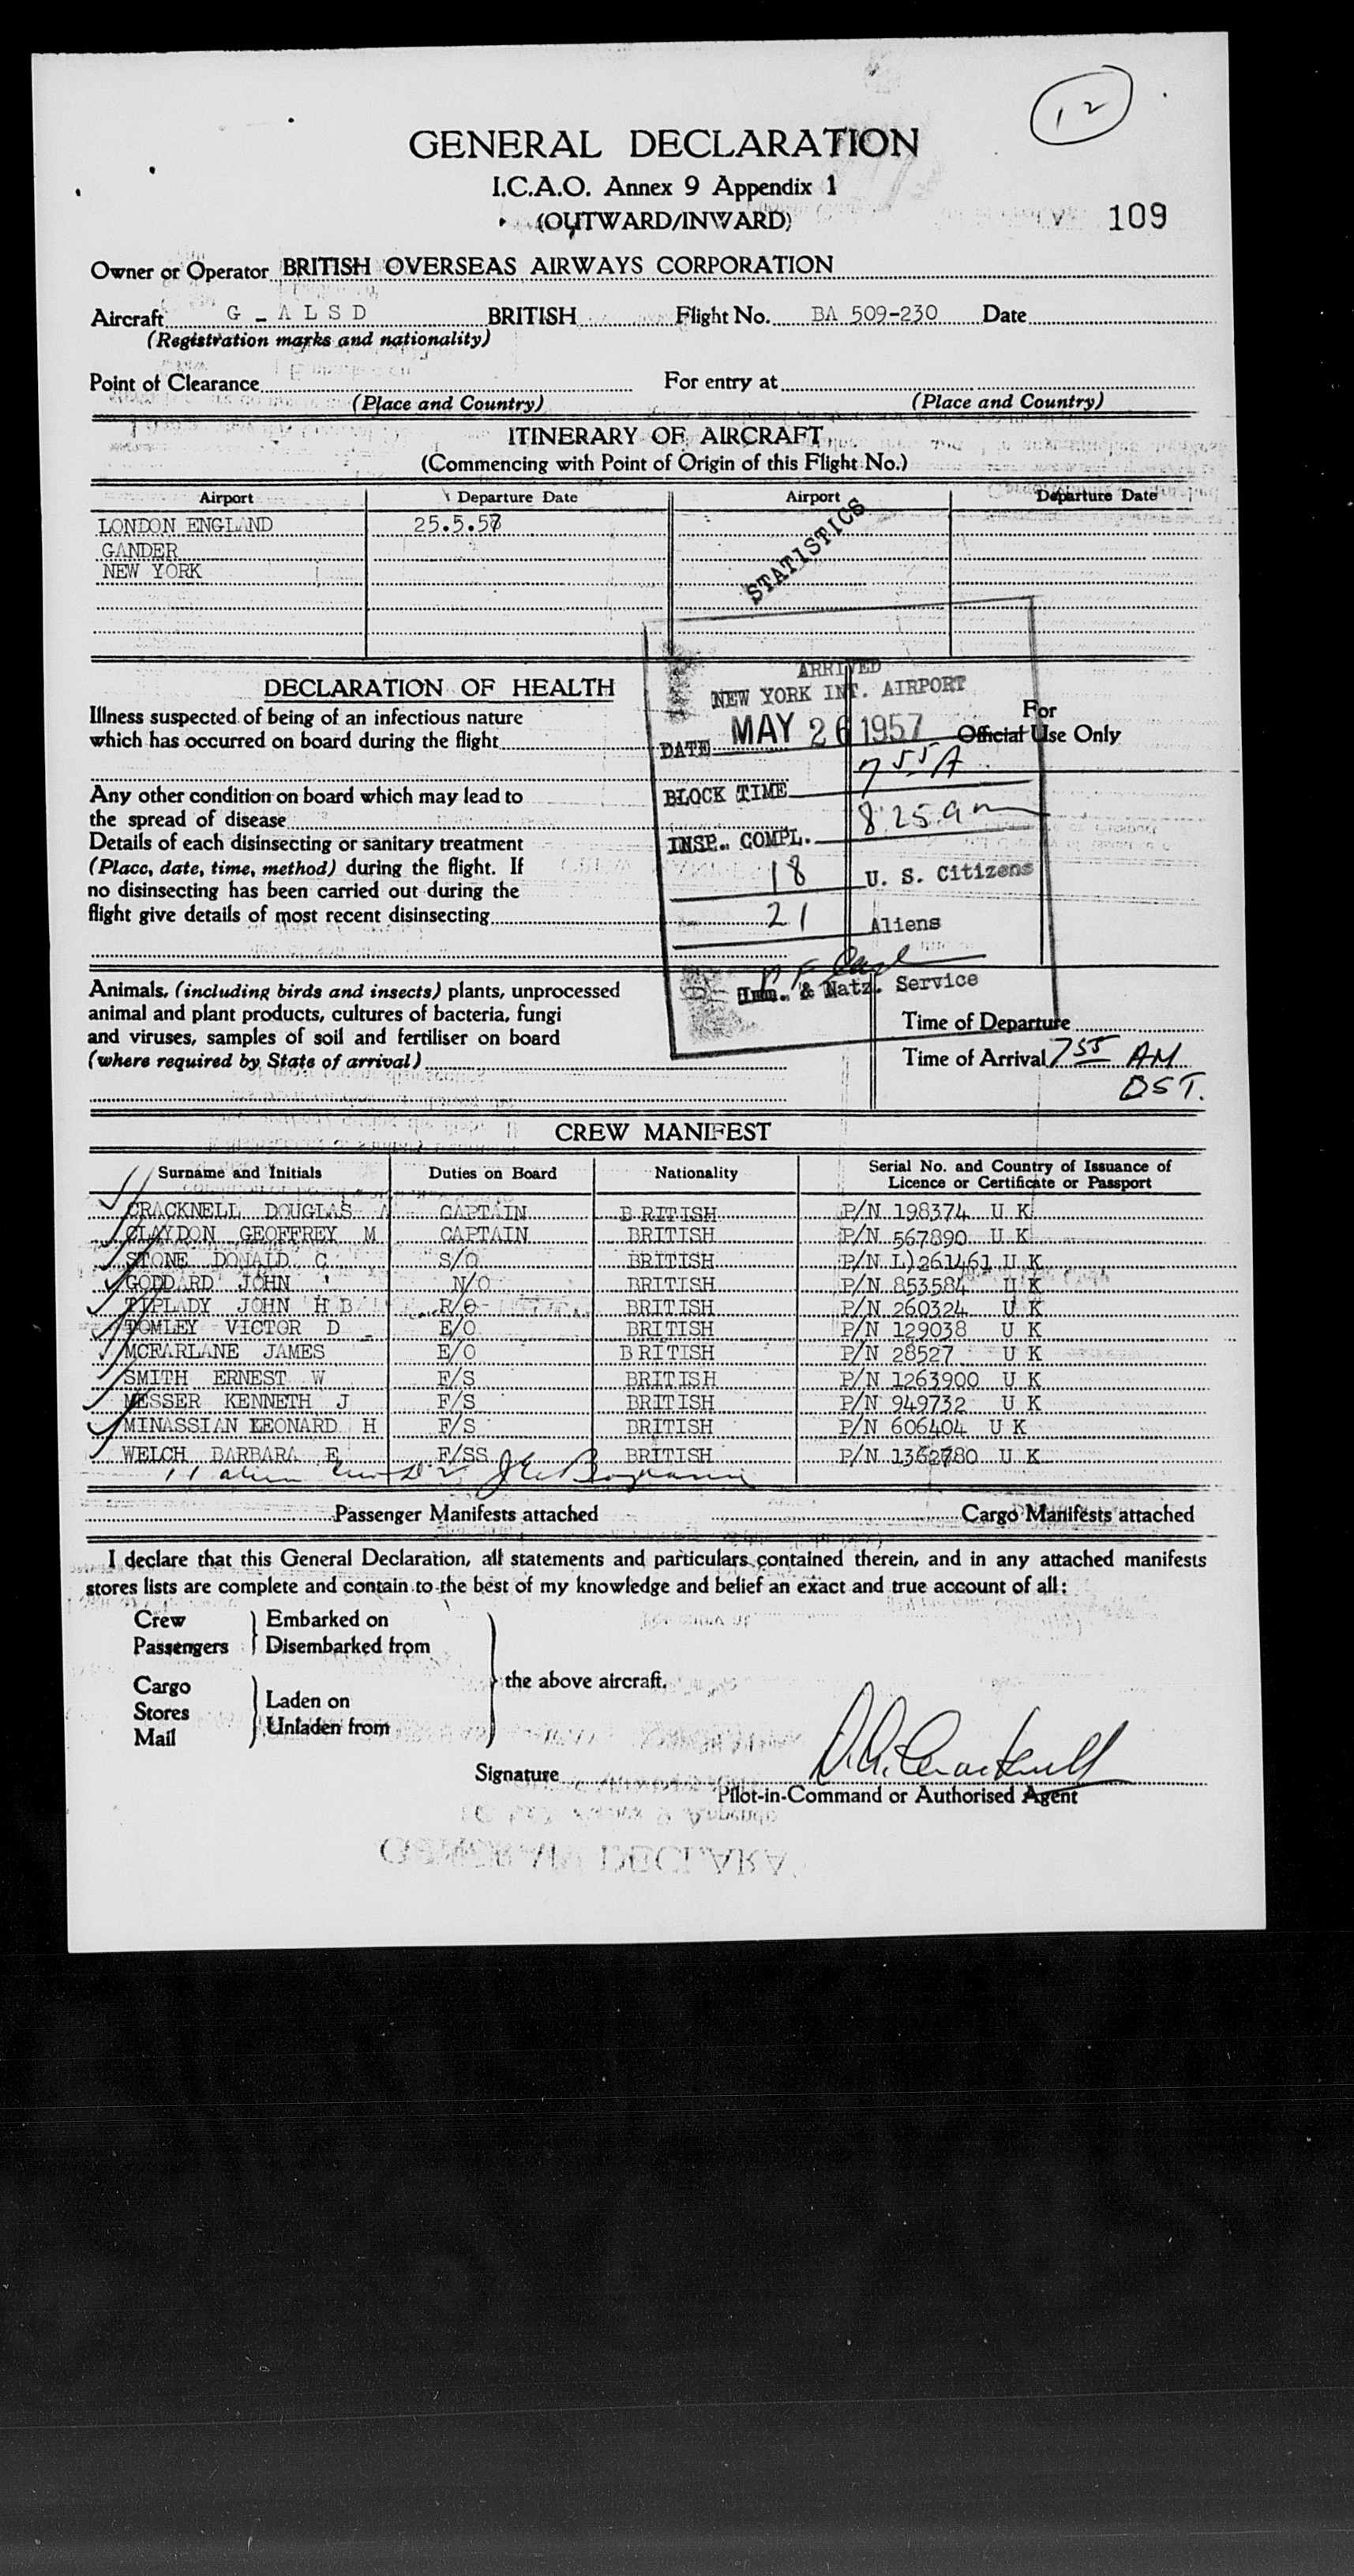 12
GENERAL DECLARATION
I.C.A.O. Annex 9 Appendix 1
(OUTWARD/INWARD)
109
Owner or Operator BRITISH OVERSEAS AIRWAYS CORPORATION
Aircraft G - A L S D BRITISH Flight No. BA 509-230 Date
(Registration marks and nationality)
Point of Clearance For entry at
(Place and Country) (Place and Country)
ITINERARY OF AIRCRAFT
(Commencing with Point of Origin of this Flight No.)
Airport Departure Date Airport Departure Date
LONDON ENGLAND 25.5.57
GANDER
NEW YORK
STATISTICS
DECLARATION OF HEALTH
Illness suspected of being of an infectious nature
which has occurred on board during the flight
Any other condition on board which may lead to
the spread of disease
Details of each disinsecting or sanitary treatment
(Place, date, time, method) during the flight. If
no disinsecting has been carried out during the
flight give details of most recent disinsecting
ARRIVED
NEW YORK INT. AIRPORT
DATE MAY 26 1957
BLOCK TIME 7 55 A
INSP. COMPL. 8:25 am
18 U. S. Citizens
21 Aliens
Imm. & Natz. Service
For
Official Use Only
Animals, (including birds and insects) plants, unprocessed
animal and plant products, cultures of bacteria, fungi
and viruses, samples of soil and fertiliser on board
(where required by State of arrival)
Time of Departure
Time of Arrival 7 55 AM
DST.
CREW MANIFEST
Surname and Initials Duties on Board Nationality Serial No. and Country of Issuance of
Licence or Certificate or Passport
CRACKNELL DOUGLAS A CAPTAIN BRITISH P/N 198374 U K
CLAYDON GEOFFREY M CAPTAIN BRITISH P/N 567890 U K
STONE DONALD C S/O BRITISH P/N L)261461 U K
GODDARD JOHN N/O BRITISH P/N 853584 U K
TIPLADY JOHN H B R/O BRITISH P/N 260324 U K
TOMLEY VICTOR D E/O BRITISH P/N 129038 U K
MCFARLANE JAMES E/O BRITISH P/N 28527 U K
SMITH ERNEST W F/S BRITISH P/N 1263900 U K
MESSER KENNETH J F/S BRITISH P/N 949732 U K
MINASSIAN LEONARD H F/S BRITISH P/N 606404 U K
WELCH BARBARA E F/SS BRITISH P/N 1362780 U K
11 alien
Passenger Manifests attached Cargo Manifests attached
I declare that this General Declaration, all statements and particulars contained therein, and in any attached manifests
stores lists are complete and contain to the best of my knowledge and belief an exact and true account of all:
Crew Embarked on
Passengers Disembarked from
the above aircraft.
Cargo
Stores Laden on
Mail Unladen from
Signature D.A. Cracknell
Pilot-in-Command or Authorised Agent